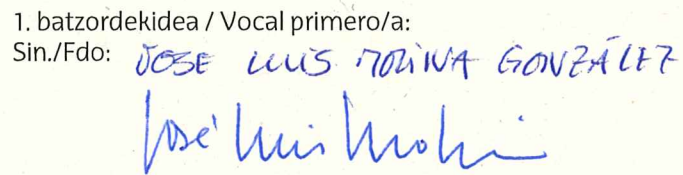 1. batzordekidea / Vocal primero/a:
Sin./Fdo: JOSE LUIS MOLINA GONZÁLEZ
José Luis Molina